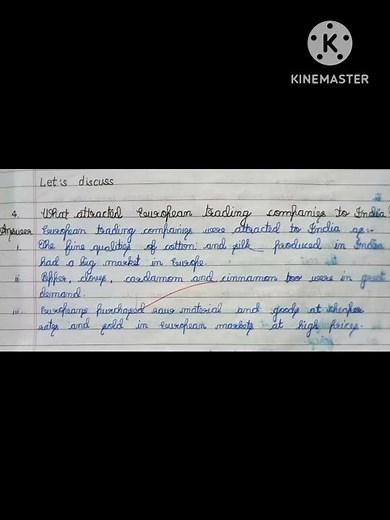 K
KINEMASTER
Let's discuss
4. What attracted European trading companies to India
Answer European trading companies were attracted to India as:-
i. The fine qualities of cotton and silk produced in Indian
had a big market in Europe.
ii Pepper, cloves, cardamom and cinnamon too were in great
demand.
iii. Europeans purchased raw material and goods at cheaper
rates and sold in European markets at high prices.